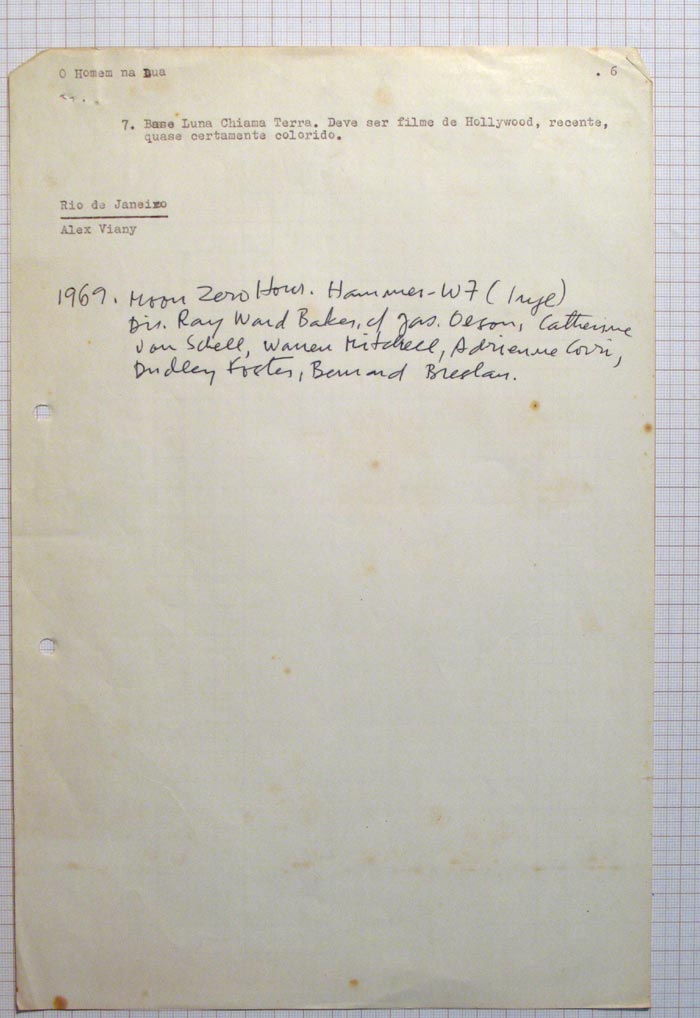 O Homem na Lua . 6
7. Base Luna Chiama Terra. Deve ser filme de Hollywood, recente,
quase certamente colorido.
Rio de Janeiro
Alex Viany
1969. Moon Zero Hour. Hammer-W7 (Ingl)
Dir. Roy Ward Baker, c/ Jas. Oeson, Catherine
Von Schell, Warren Mitchell, Adrienne Corri,
Dudley Foster, Bernard Breslaw.